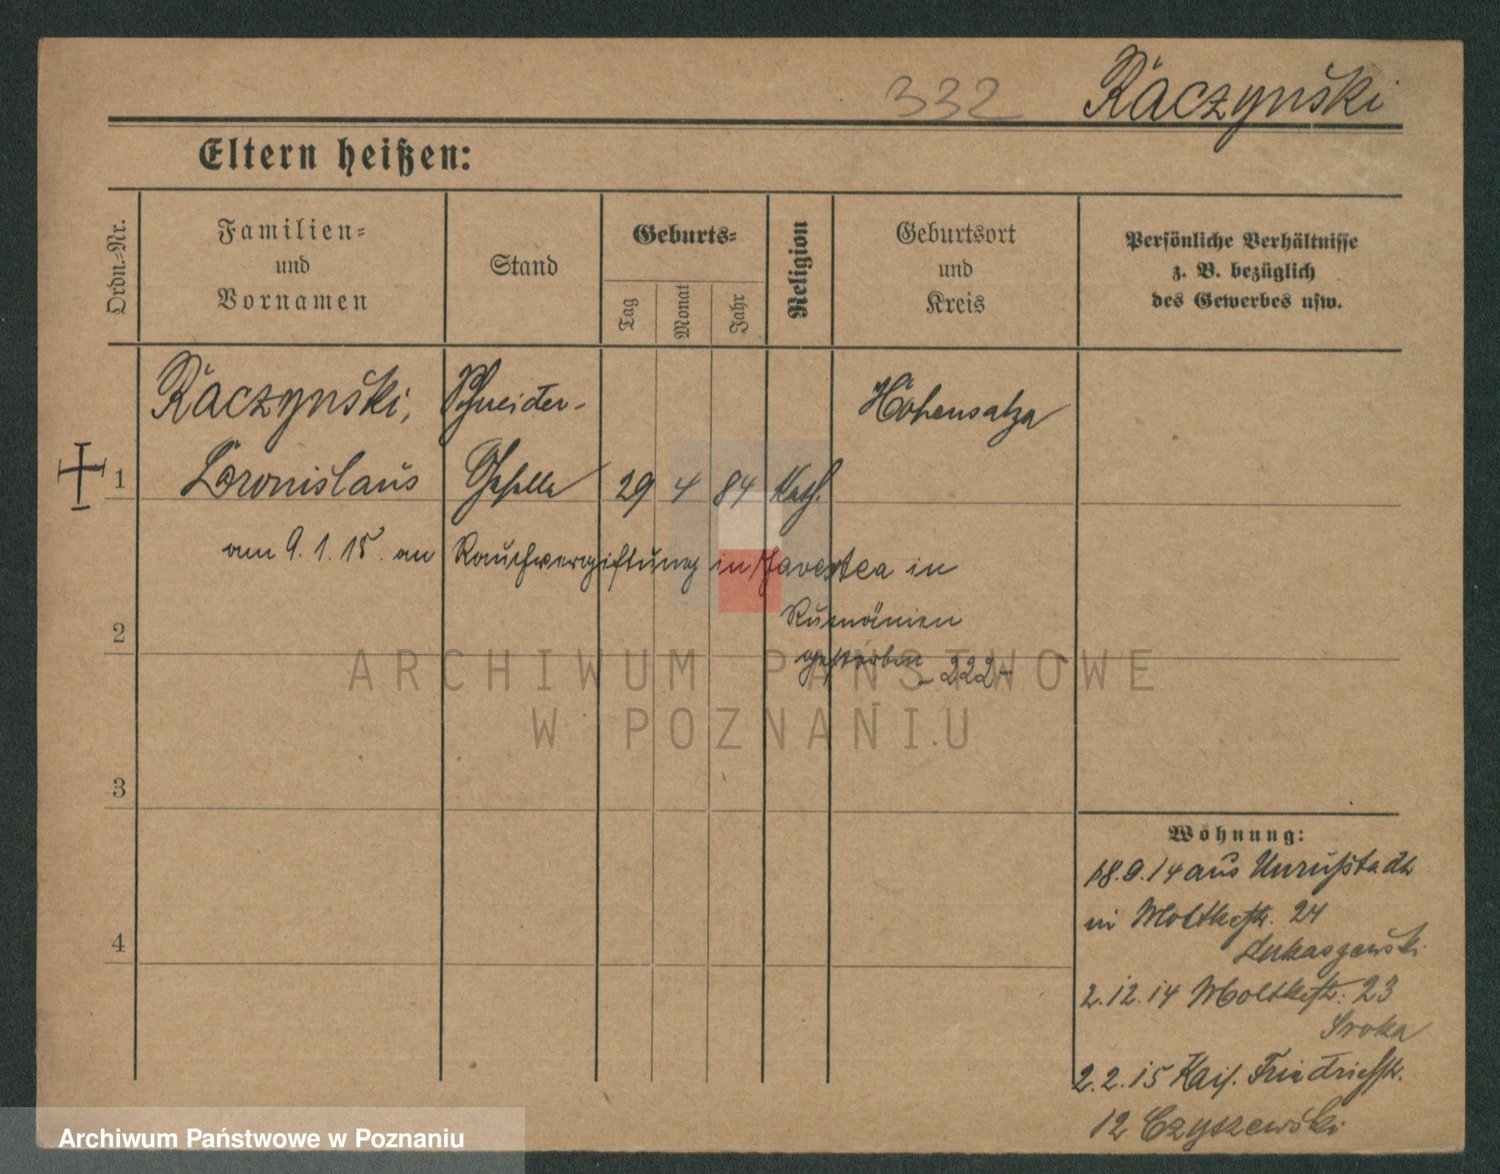 332 Raczynski
Eltern heißen:
Ordn.-Nr.
Familien-
und
Vornamen
Stand
Geburts-
Tag
Monat
Jahr
Religion
Geburtsort
und
Kreis
Persönliche Verhältnisse
z. B. bezüglich
des Gewerbes usw.
Raczynski, Schneider- Hohensalza
1 Bronislaus Geselle 29 4 84 Kath.
am 9. 1. 15. an Rauchvergiftung in in
Rumänien
2
gestorben - 222 -
ARCHIWUM PAŃSTWOWE
W POZNANIU
3
4
Wohnung:
18.9.14 aus Unruhstadt
in Moltkestr. 24
Lukaszewski
2.12.14 Moltkestr. 23
Sroka
2.2.15 Kais. Friedrichstr.
12 Czyszewski
Archiwum Państwowe w Poznaniu